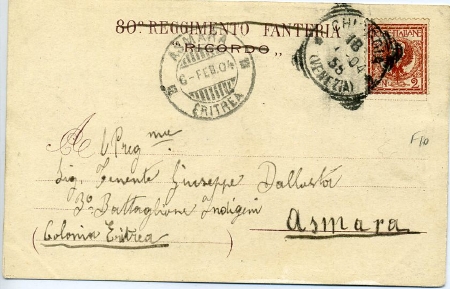 80º REGGIMENTO FANTERIA
RICORDO „
ASMARA
6-FEB.04
ERITREA
CHI
18
04
(VENEZIA)
ITALIANE
2
F10
All Preg.me
Sig. Tenente Giuseppe Dallosta
3º Battaglione Indigeni
Asmara
(Colonia Eritrea)